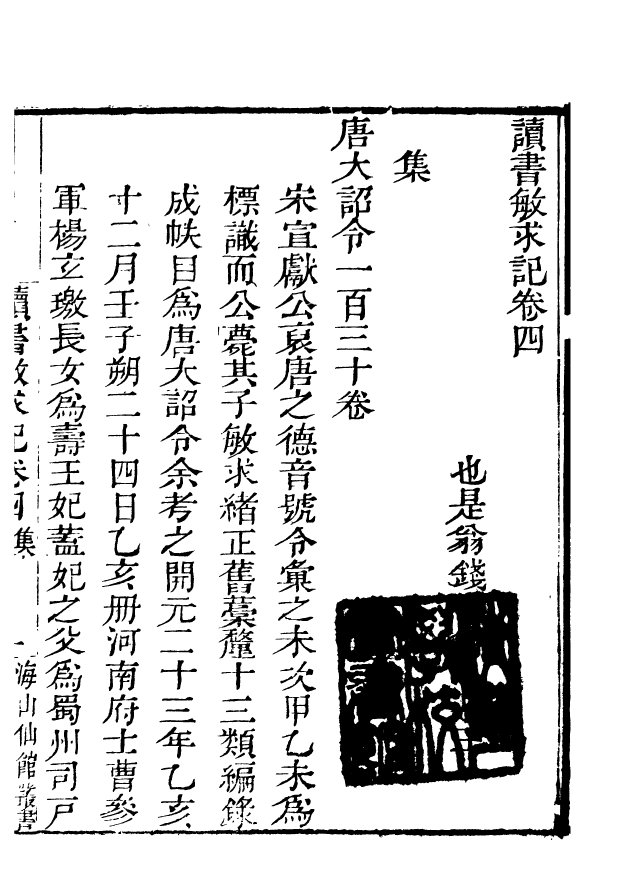 讀書敏求記卷四
也是翁錢
集
唐大詔令一百三十卷
宋宣獻公裒唐之德音號令彙之未次甲乙未爲
標識而公薨其子敏求緒正舊藁釐十三類編錄
成帙目爲唐大詔令余考之開元二十三年乙亥
十二月壬子朔二十四日乙亥冊河南府士曹參
軍楊立璬長女爲壽王妃蓋妃之父爲蜀州司戸
讀書敏求記卷四 集 一 海山仙館叢書